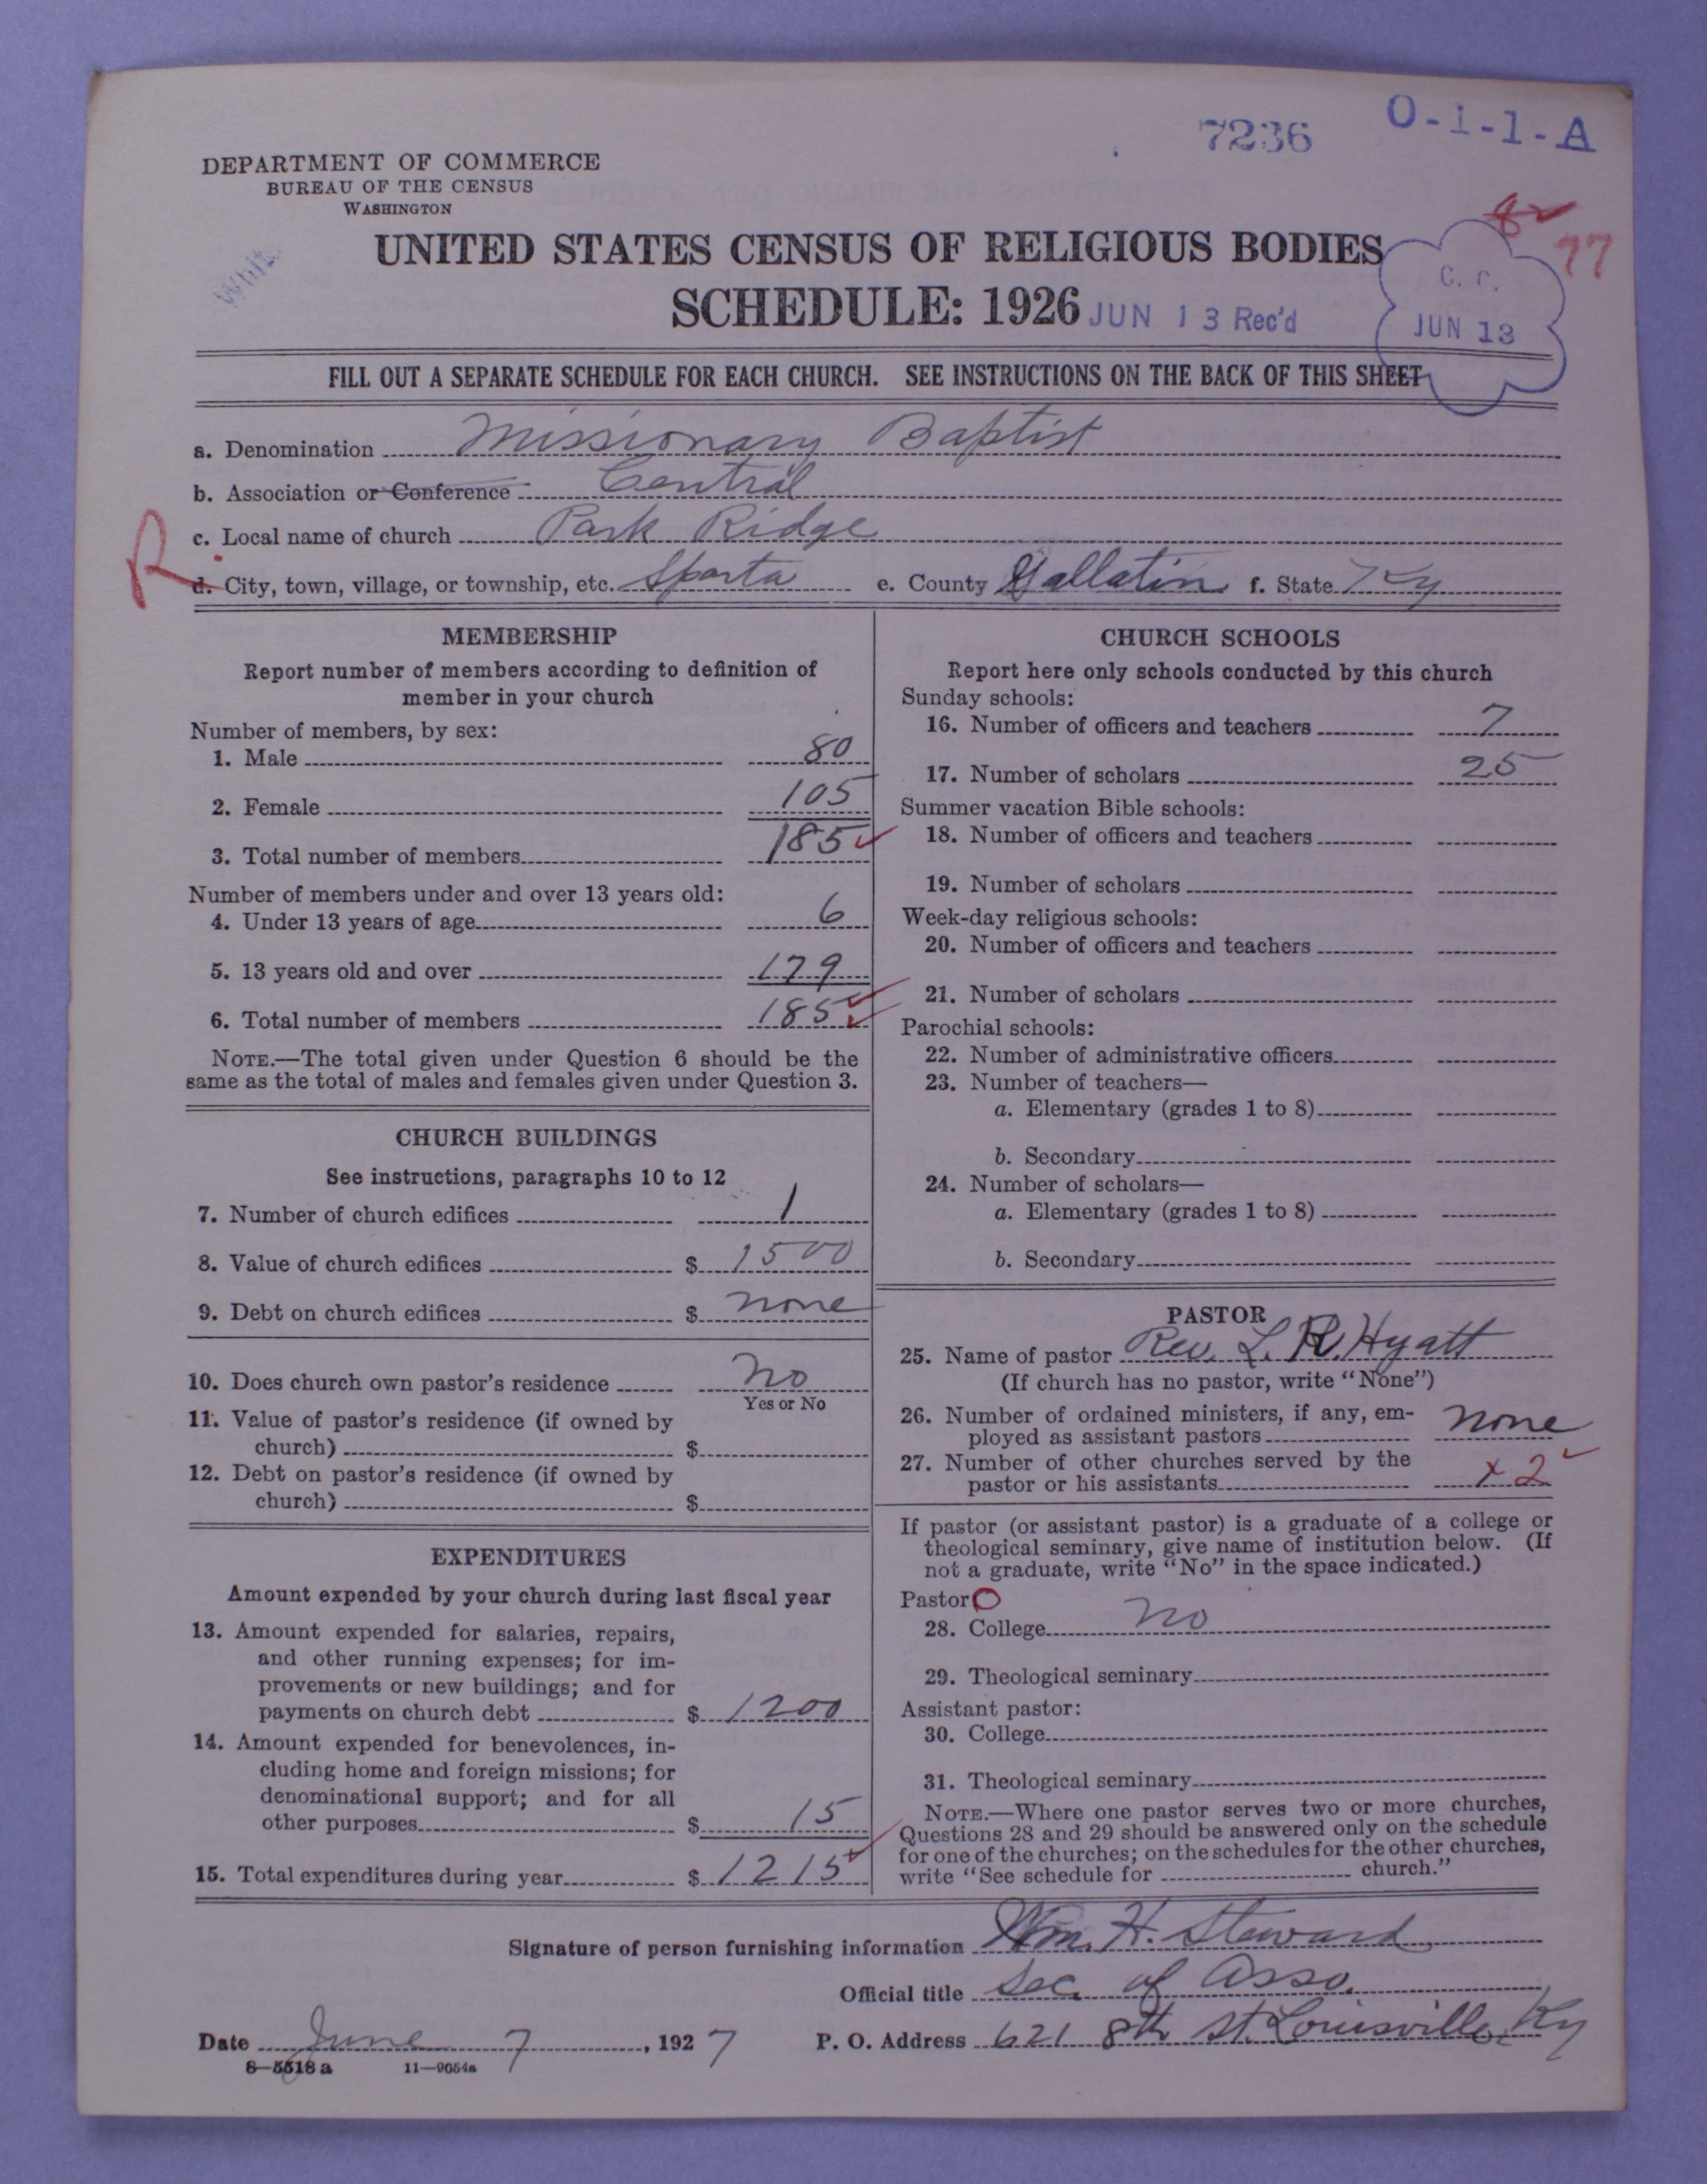 7236 O-1-1-A
DEPARTMENT OF COMMERCE
BUREAU OF THE CENSUS
WASHINGTON
77
UNITED STATES CENSUS OF RELIGIOUS BODIES
SCHEDULE: 1926 JUN 13 Rec'd
JUN 13
FILL OUT A SEPARATE SCHEDULE FOR EACH CHURCH. SEE INSTRUCTIONS ON THE BACK OF THIS SHEET
a. Denomination Missionary Baptist
b. Association or Conference Central
c. Local name of church Park Ridge
R
d. City, town, village, or township, etc. Sparta e. County Gallatin f. State Ky
MEMBERSHIP
Report number of members according to definition of
member in your church
Number of members, by sex:
1. Male 80
2. Female 105
3. Total number of members 185
Number of members under and over 13 years old:
4. Under 13 years of age 6
5. 13 years old and over 179
6. Total number of members 185
NOTE.—The total given under Question 6 should be the
same as the total of males and females given under Question 3.
CHURCH BUILDINGS
See instructions, paragraphs 10 to 12
7. Number of church edifices 1
8. Value of church edifices $ 1500
9. Debt on church edifices $ none
10. Does church own pastor's residence no
Yes or No
11. Value of pastor's residence (if owned by
church) $
12. Debt on pastor's residence (if owned by
church) $
EXPENDITURES
Amount expended by your church during last fiscal year
13. Amount expended for salaries, repairs,
and other running expenses; for im-
provements or new buildings; and for
payments on church debt $ 1200
14. Amount expended for benevolences, in-
cluding home and foreign missions; for
denominational support; and for all
other purposes $ 15
15. Total expenditures during year $ 1215
CHURCH SCHOOLS
Report here only schools conducted by this church
Sunday schools:
16. Number of officers and teachers 7
17. Number of scholars 25
Summer vacation Bible schools:
18. Number of officers and teachers
19. Number of scholars
Week-day religious schools:
20. Number of officers and teachers
21. Number of scholars
Parochial schools:
22. Number of administrative officers
23. Number of teachers—
a. Elementary (grades 1 to 8)
b. Secondary
24. Number of scholars—
a. Elementary (grades 1 to 8)
b. Secondary
PASTOR
25. Name of pastor Rev. L. R. Hyatt
(If church has no pastor, write "None")
26. Number of ordained ministers, if any, em-
ployed as assistant pastors none
27. Number of other churches served by the
pastor or his assistants x 2
If pastor (or assistant pastor) is a graduate of a college or
theological seminary, give name of institution below. (If
not a graduate, write "No" in the space indicated.)
Pastor O
28. College no
29. Theological seminary
Assistant pastor:
30. College
31. Theological seminary
NOTE.—Where one pastor serves two or more churches,
Questions 28 and 29 should be answered only on the schedule
for one of the churches; on the schedules for the other churches,
write "See schedule for church."
Signature of person furnishing information Wm. H. Steward
Official title Sec. of Asso.
Date June 7, 1927 P. O. Address 621 8th St. Louisville, Ky
8-5518a 11—9054a